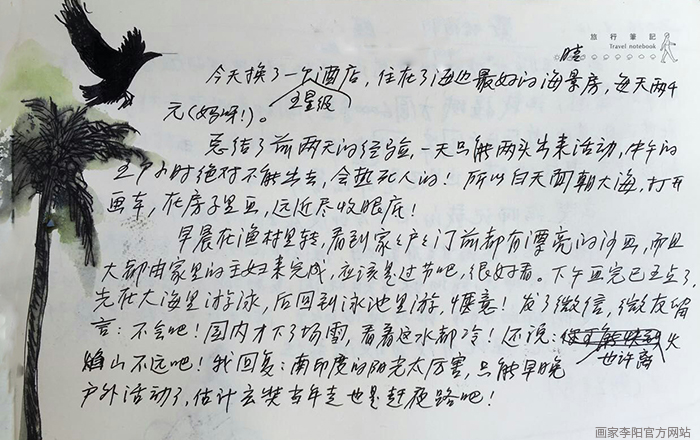 旅行筆記
Travel notebook
晴
今天换了一个酒店，住在了海边最好的海景房，每天两千
五星级
元(妈呀!)。
总结了前两天的经验，一天只能两头出来活动，中午的
五个小时绝对不能出去，会热死人的！所以白天面朝大海，打开
画车，在房子里画，远近尽收眼底！
早晨在渔村里转，看到家家户户门前都有漂亮的沙画，而且
大都由家里的主妇来完成，应该是过节吧，很好看。下午画完已五点了
先在大海里游泳，后回到泳池里游，惬意！发了微信，微友留
言：不会吧！国内才下了场雪，看着这水都冷！还说：
也许离火
焰山不远吧！我回复：南印度的阳光太厉害，只能早晚
户外活动了，估计玄奘当年走也是赶夜路吧！
画家李阳官方网站